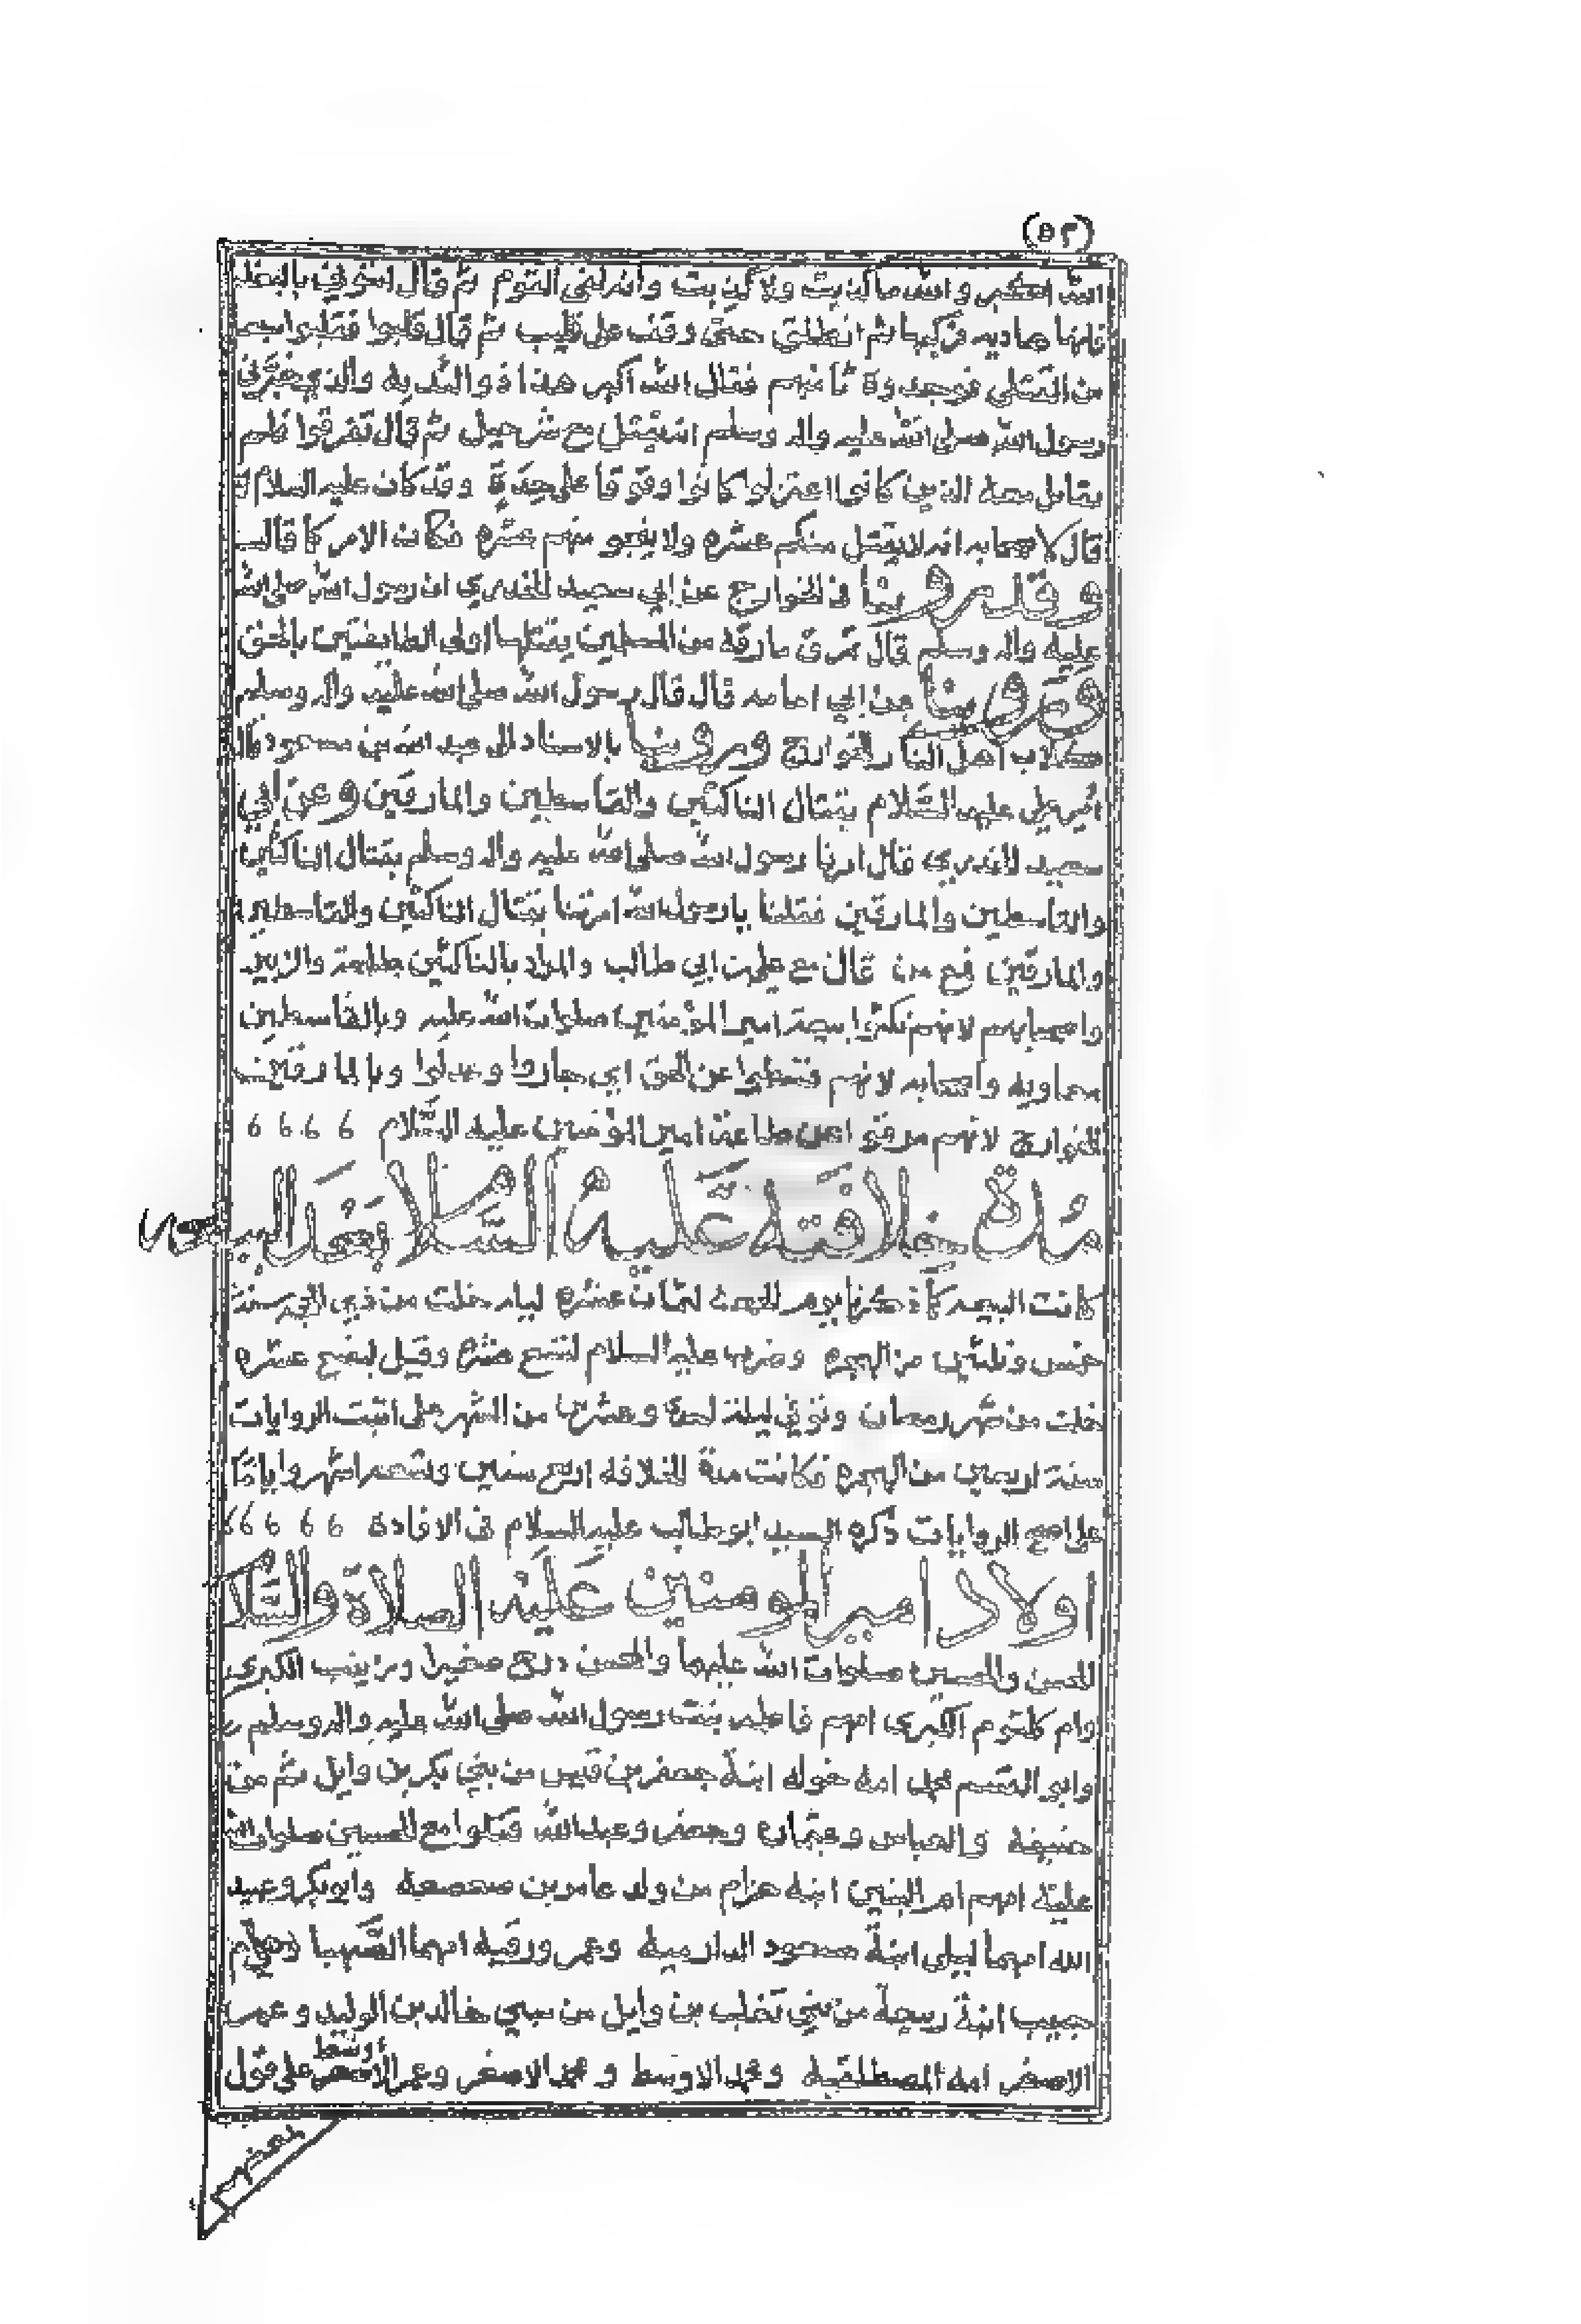 (٥٢)
الله اكبر والله ماكذبت ولاكذبت وانه لفي القوم ثم قال اتوني بالبغله
فانها هاديه فركبها ثم انطلق حتى وقف على قليب ثم قال قلبوا فقلبوا سبعه
من القتلى فوجدوه ثامنهم فقال الله اكبر هذا ذو الثديه والذي خبرني
رسول الله صلى الله عليه واله وسلم انه يقتل مع شر جيل ثم قال تفرقوا فلم
يقاتل معه الذين كانوا اعتزلوا كانوا وقوفا على حدة وقد كان عليه السلام
قال لاصحابه انه لايقتل منكم عشره ولا ينجو منهم عشره فكان الامر كما قال
وقد روينا في الخوارج عن ابي سعيد الخدري ان رسول الله صلى الله
عليه واله وسلم قال تمرق مارقة من المسلمين يقتلها اولى الطايفتين بالحق
وروينا عن ابي امامه قال قال رسول الله صلى الله عليه واله وسلم
كلاب اهل النار الخوارج وروينا بالاسناد الى عبد الله بن مسعود قال
امر علي عليه السلام بقتال الناكثين والقاسطين والمارقين وعن ابي
سعيد الخدري قال امرنا رسول الله صلى الله عليه واله وسلم بقتال الناكثين
والقاسطين والمارقين فقلنا يارسول الله امرتنا بقتال الناكثين والقاسطين
والمارقين فمع من قال مع علي بن ابي طالب والمراد بالناكثين طلحة والزبير
واصحابهم لانهم نكثوا بيعة امير المؤمنين صلوات الله عليه وبالقاسطين
معاويه واصحابه لانهم قسطوا عن الحق اي جاروا وعدلوا وبالمارقين
الخوارج لانهم مرقوا عن طاعة امير المؤمنين عليه السلام 6 6 6 6
مدة خلافته عليه السلام
كانت البيعه كما ذكرنا يوم الجمعة لثمان عشره ليله خلت من ذي الحجه سنة
خمس وثلثين من الهجره وضرب عليه السلام لتسع عشره وقيل لسبع عشره
خلت من شهر رمضان وتوفي ليلة احدى وعشرين من الشهر على اثبت الروايات
سنة اربعين من الهجره فكانت مدة الخلافة اربع سنين وتسعه اشهر واياما
على اصح الروايات ذكره السيد ابو طالب عليه السلام في الافادة 6 6 6 6 6
اولاد امير المومنين عليه الصلاة والسلا
الحسن والحسين صلوات الله عليهما والمحسن درج صغيرا وزينب الكبرى
وام كلثوم الكبرى امهم فاطمه بنت رسول الله صلى الله عليه واله وسلم
وابو القسم محمد امه خوله ابنة جعفر بن قيس من بني بكر بن وايل ثم من
حنيفة والعباس وعثمان وجعفر وعبدالله قتلوا مع الحسين صلوات الله
عليه امهم ام البنين ابنة حزام من ولد عامر بن صعصعة وابوبكر وعبيد
الله امهما ليلى ابنة مسعود الدارمية وعمر ورقية امهما الصهبا
حبيب ابنة ربيعة من بني تغلب بن وايل من سبي خالد بن الوليد وعمر
الاصغر امه المصطلقيه ومحمد الاوسط ومحمد الاصغر وعمر الاصغر على قول
بعضهم